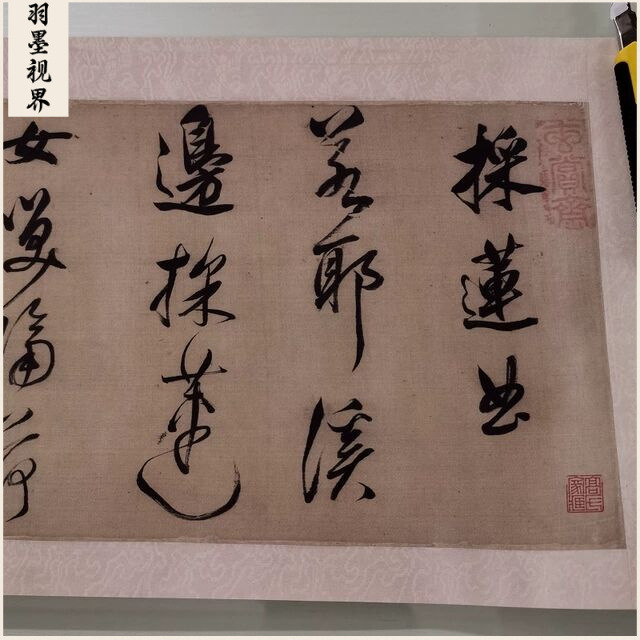 羽墨视界
採蓮曲
若耶溪
邊採蓮
女笑隔荷